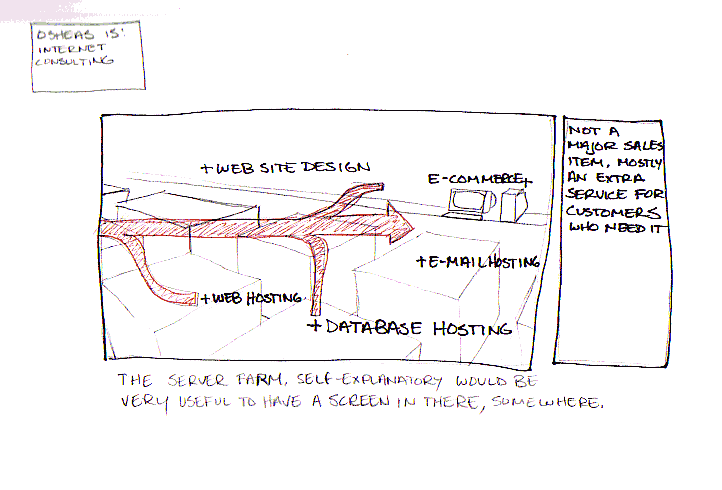 OSHEAS IS:
INTERNET
CONSULTING
+ WEB SITE DESIGN
E-COMMERCE+
+ E-MAIL HOSTING
+ WEB HOSTING.
+ DATABASE HOSTING
NOT A
MAJOR SALES
ITEM, MOSTLY
AN EXTRA
SERVICE FOR
CUSTOMERS
WHO NEED IT
THE SERVER FARM, SELF-EXPLANATORY WOULD BE
VERY USEFUL TO HAVE A SCREEN IN THERE, SOMEWHERE.